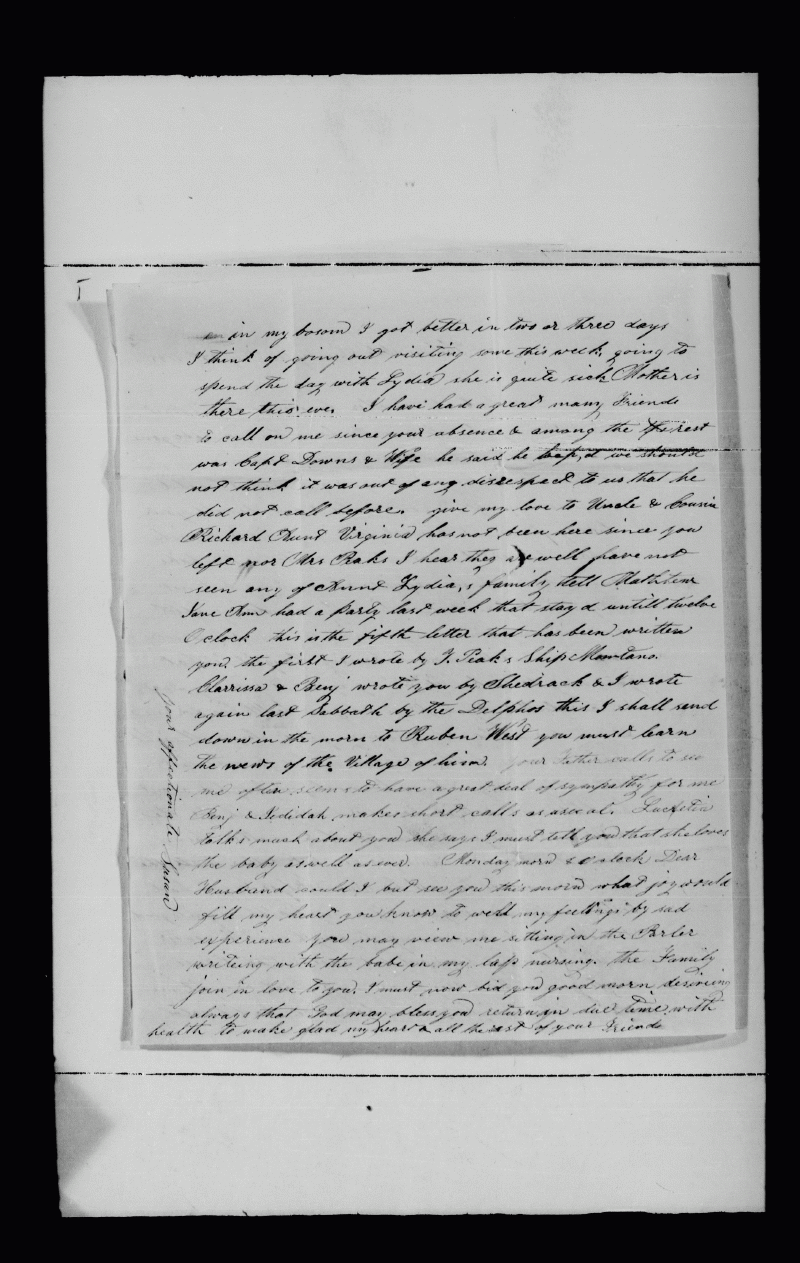 in my bosom I got better in two or three days
I think of going out visiting some this week, going to
spend the day with Lydia she is quite sick Mother is
there this eve. I have had a great many Friends
to call on me since your absence & among the rest
was Capt Downs & Wife he said he hop,d we should
not think it was out of any disrespect to us that he
did not call before. give my love to Uncle & Cousin
Richard Aunt Virginia has not been here since you
left nor Mrs I hear they are well have not
seen any of Aunt Lydia,s family tell
Jane Ann had a party last week that stay d untill twelve
O clock this is the fifth letter that has been written
you. the first I wrote by Ship
Clarrissa & Benj wrote you by Shedrack & I wrote
again last Sabbath by the Delphos this I shall send
down in the morn to Ruben West you must learn
the news of the Village of him. your Father calls to see
me often seems to have a great deal of sympathy for me
Benj & Jedidah makes short calls as useal. Lucretia
talks much about you she says I must tell you that she loves
the baby as well as ever. Monday morn o clock Dear
Husband could I but see you this morn what joy would
fill my heart you know to well my feelings by sad
experience you may view me sitting in the Parler
writeing with the babe in my lap nursing. the Family
join in love to you. I must now bid you good morn desireing
always that God may bless you return in due time with
health to make glad my heart & all the rest of your Friends
Your affectionate Susan